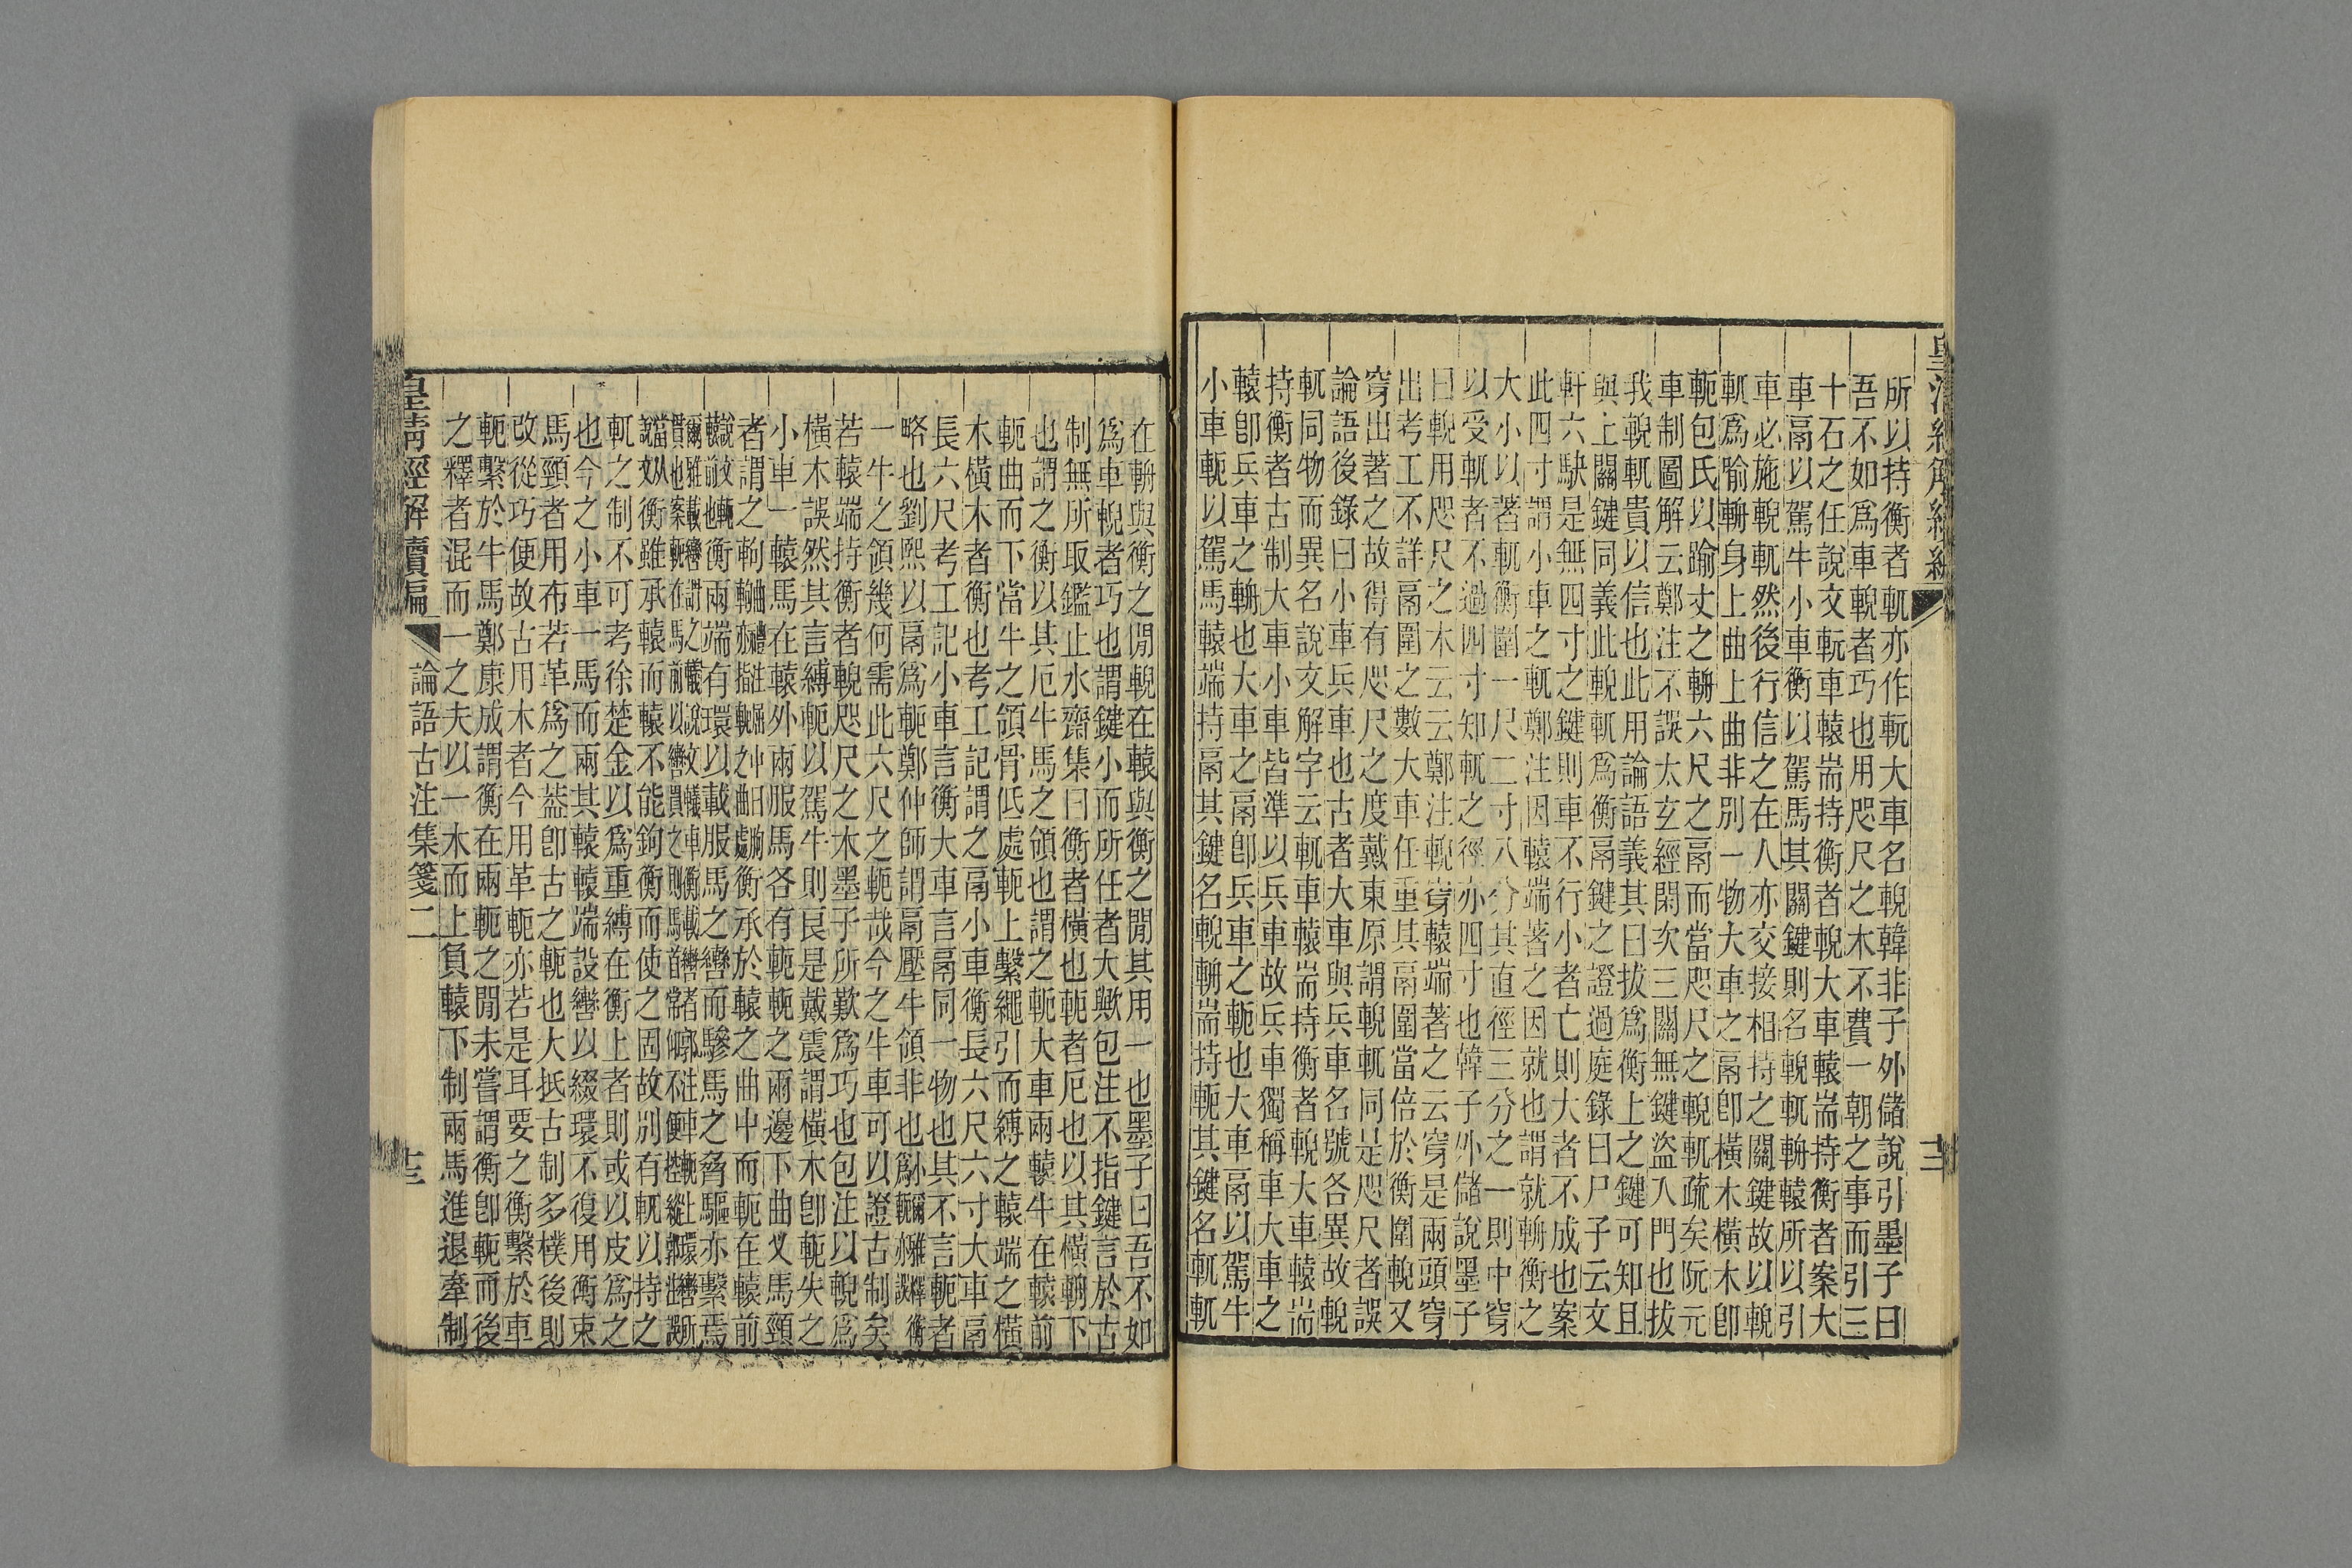 所以持衡者軏亦作軏大車名輗韓非子外儲說引墨子曰
吾不如爲車輗者巧也用咫尺之木不費一朝之事而引三
十石之任說文軏車轅耑持衡者輗大車轅耑持衡者案大
車鬲以駕牛小車衡以駕馬其關鍵則名輗軏輈轅所以引
車必施輗軏然後行信之在人亦交接相持之關鍵故以輗
軏爲喻輈身上曲上曲非別一物大車之鬲卽橫木橫木卽
軶包氏以踰丈之輈六尺之鬲而當咫尺之輗軏疏矣阮元
車制圖解云鄭注不誤太玄經閑次三關無鍵盜入門也拔
我輗軏貴以信也此用論語義其曰拔爲衡上之鍵可知且
與上關鍵同義此輗軏爲衡鬲鍵之證過庭錄曰尸子云文
軒六駃是無四寸之鍵則車不行小者亡則大者不成也案
此四寸謂小車之軏鄭注因轅端著之因就也謂就輈衡之
大小以著軏衡圍一尺二寸八分其直徑三分之一則中穿
以受軏者不過四寸知軏之徑亦四寸也韓子外儲說墨子
曰輗用咫尺之木云云鄭注輗穿轅端著之云穿是兩頭穿
出考工不詳鬲圍之數大車任重其鬲圍當倍於衡圍輗又
穿出著之故得有咫尺之度戴東原謂輗軏同是咫尺者誤
論語後錄曰小車兵車也古者大車與兵車名號各異故輗
軏同物而異名說文解字云軏車轅耑持衡者輗大車轅耑
持衡者古制大車小車皆準以兵車故兵車獨稱車大車之
轅卽兵車之輈也大車之鬲卽兵車之軶也大車鬲以駕牛
小車軶以駕馬轅端持鬲其鍵名輗輈耑持軶其鍵名軏軏
在輈與衡之閒輗在轅與衡之閒其用一也墨子曰吾不如
爲車輗者巧也謂鍵小而所任者大歟包注不指鍵言於古
制無所取鑑止水齋集曰衡者橫也軶者厄也以其橫輈下
也謂之衡以其厄牛馬之領也謂之軶大車兩轅牛在轅前
軶曲而下當牛之領骨低處軶上繫繩引而縛之轅端之橫
木橫木者衡也考工記謂之鬲小車衡長六尺六寸大車鬲
長六尺考工記小車言衡大車言鬲同一物也其不言軶者
略也劉熙以鬲爲軶鄭仲師謂鬲壓牛領非也
一牛之領幾何需此六尺之軶哉今之牛車可以證古制矣
若轅端持衡者輗咫尺之木墨子所歎爲巧也包注以輗爲
橫木誤然其言縛軶以駕牛則良是戴震謂橫木卽軶失之
小車一轅馬在轅外兩服馬各有軶軶之兩邊下曲乂馬頸
者謂之軥衡承於轅之曲中而軶在轅前
衡兩端有環以載服馬之轡而驂馬之脅驅亦繫焉
衡雖承轅而轅不能鉤衡而使之固故別有軏以持之
軏之制不可考徐楚金以爲重縛在衡上者則或以皮爲之
也今之小車一馬而兩其轅轅端設轡以綴環不復用衡束
馬頸者用布若革爲之葢卽古之軶也大抵古制多樸後則
改從巧便故古用木者今用革軶亦若是耳要之衡繫於車
軶繫於牛馬鄭康成謂衡在兩軶之閒未嘗謂衡卽軶而後
之釋者混而一之夫以一木而上負轅下制兩馬進退牽制
皇清經解續編
論語古注集箋二